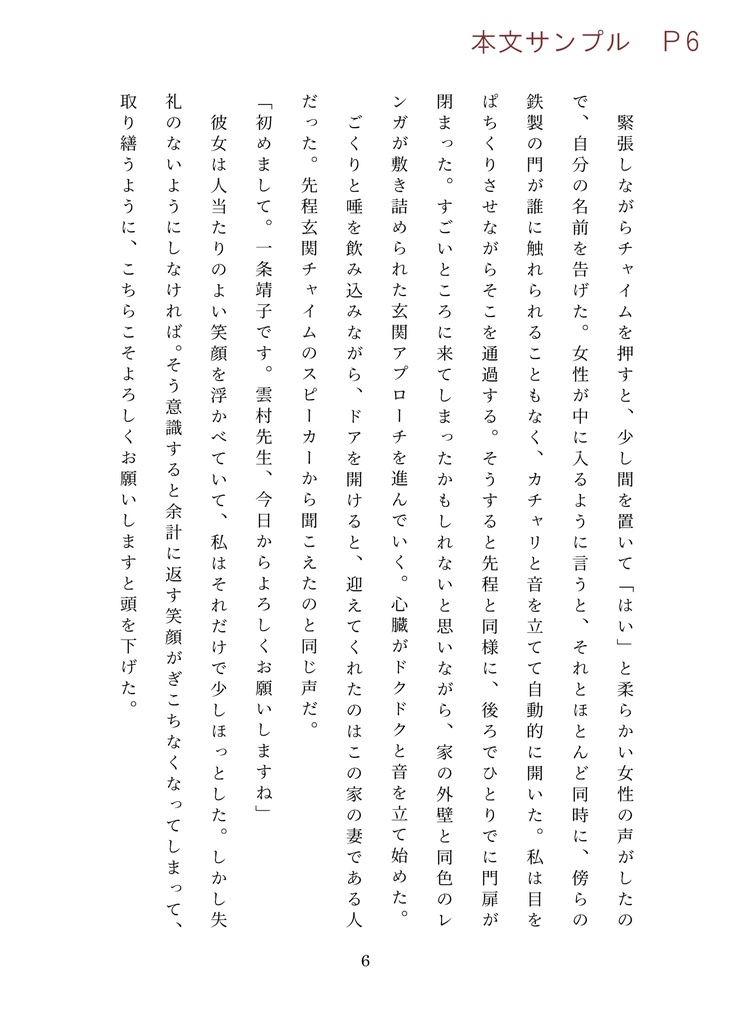 本文サンプル　P6
　緊張しながらチャイムを押すと、少し間を置いて「はい」と柔らかい女性の声がしたの
で、自分の名前を告げた。女性が中に入るように言うと、それとほとんど同時に、傍らの
鉄製の門が誰に触れられることもなく、カチャリと音を立てて自動的に開いた。私は目を
ぱちくりさせながらそこを通過する。そうすると先程と同様に、後ろでひとりでに門扉が
閉まった。すごいところに来てしまったかもしれないと思いながら、家の外壁と同色のレ
ンガが敷き詰められた玄関アプローチを進んでいく。心臓がドクドクと音を立て始めた。
　ごくりと唾を飲み込みながら、ドアを開けると、迎えてくれたのはこの家の妻である人
だった。先程玄関チャイムのスピーカーから聞こえたのと同じ声だ。
「初めまして。一条靖子です。雲村先生、今日からよろしくお願いしますね」
　彼女は人当たりのよい笑顔を浮かべていて、私はそれだけで少しほっとした。しかし失
礼のないようにしなければ。そう意識すると余計に返す笑顔がぎこちなくなってしまって、
取り繕うように、こちらこそよろしくお願いしますと頭を下げた。
6